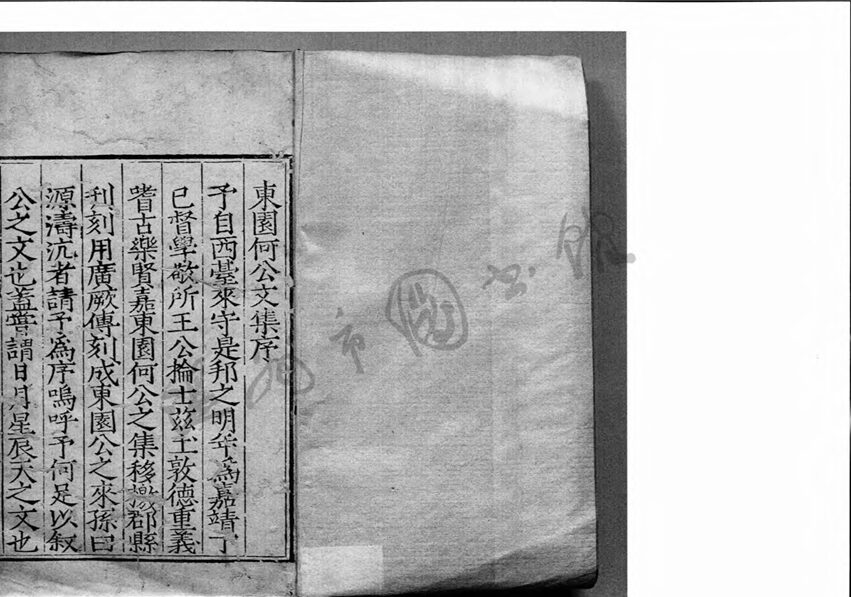 東園何公文集序
予自西臺來守是邦之明年為嘉靖丁
巳督學敬所王公掄士茲土敦德重義
嗜古樂賢嘉東園何公之集移檄郡縣
刋刻用廣厥傳刻成東園公之來孫曰
源濤沆者請予為序嗚呼予何足以叙
公之文也蓋嘗謂日月星辰天之文也
市圖书館